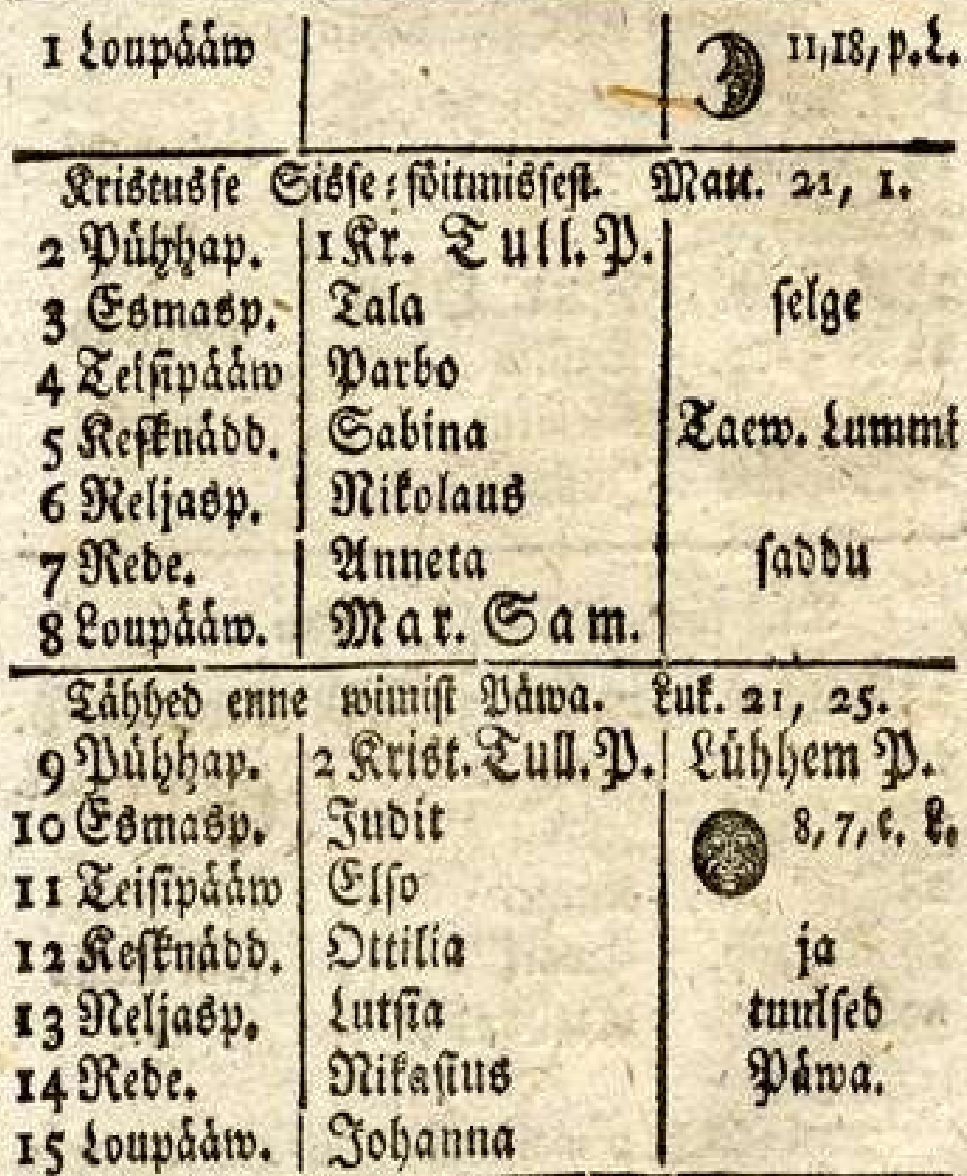 1 Loupääw 11,18, p. L.
Kristusse Sisse-sõitmissest. Matt. 21, 1.
2 Pühhap. 1 Kr. Tull. P.
3 Esmasp. Tala selge
4 Teisipääw Parbo
5 Kesknädd. Sabina Taew. Lummi
6 Neljasp. Nikolaus
7 Rede. Anneta saddu
8 Loupääw. Mar. Sam.
Tähhed enne wimist Päwa. Luk. 21, 25.
9 Pühhap. 2 Krist. Tull. P. Lühhem P.
10 Esmasp. Judit 8, 7, e. L.
11 Teisipääw Elso
12 Kesknädd. Ottilia ja
13 Neljasp. Lutsia tuulsed
14 Rede. Nikasius Päwa.
15 Loupääw. Johanna